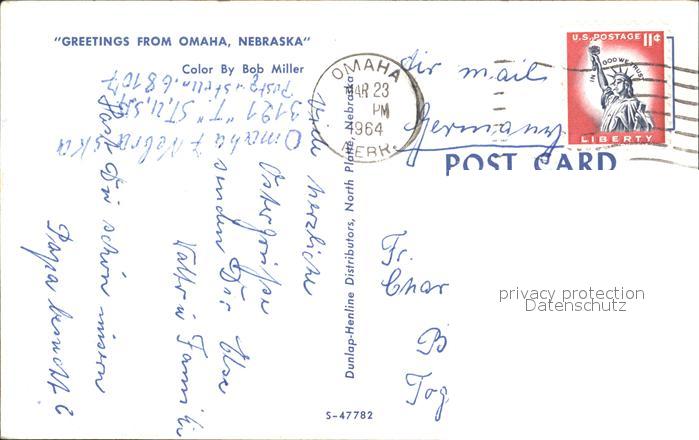 "GREETINGS FROM OMAHA, NEBRASKA"
Color By Bob Miller
3121 "T" ST. U.S.A.
Omaha 7 Nebraska
Viele herzliche
Ostergrüße
senden Dir Else
Walter u Famili
Hast Du schön unsern
Papa besucht?
Dunlap-Henline Distributors, North Platte, Nebraska
S-47782
OMAHA
MAR 23
PM
1964
NEBR.
U.S. POSTAGE 11¢
IN GOD WE TRUST
LIBERTY
Air mail
Germany
POST CARD
Fr.
Char
B
Tog
privacy protection
Datenschutz